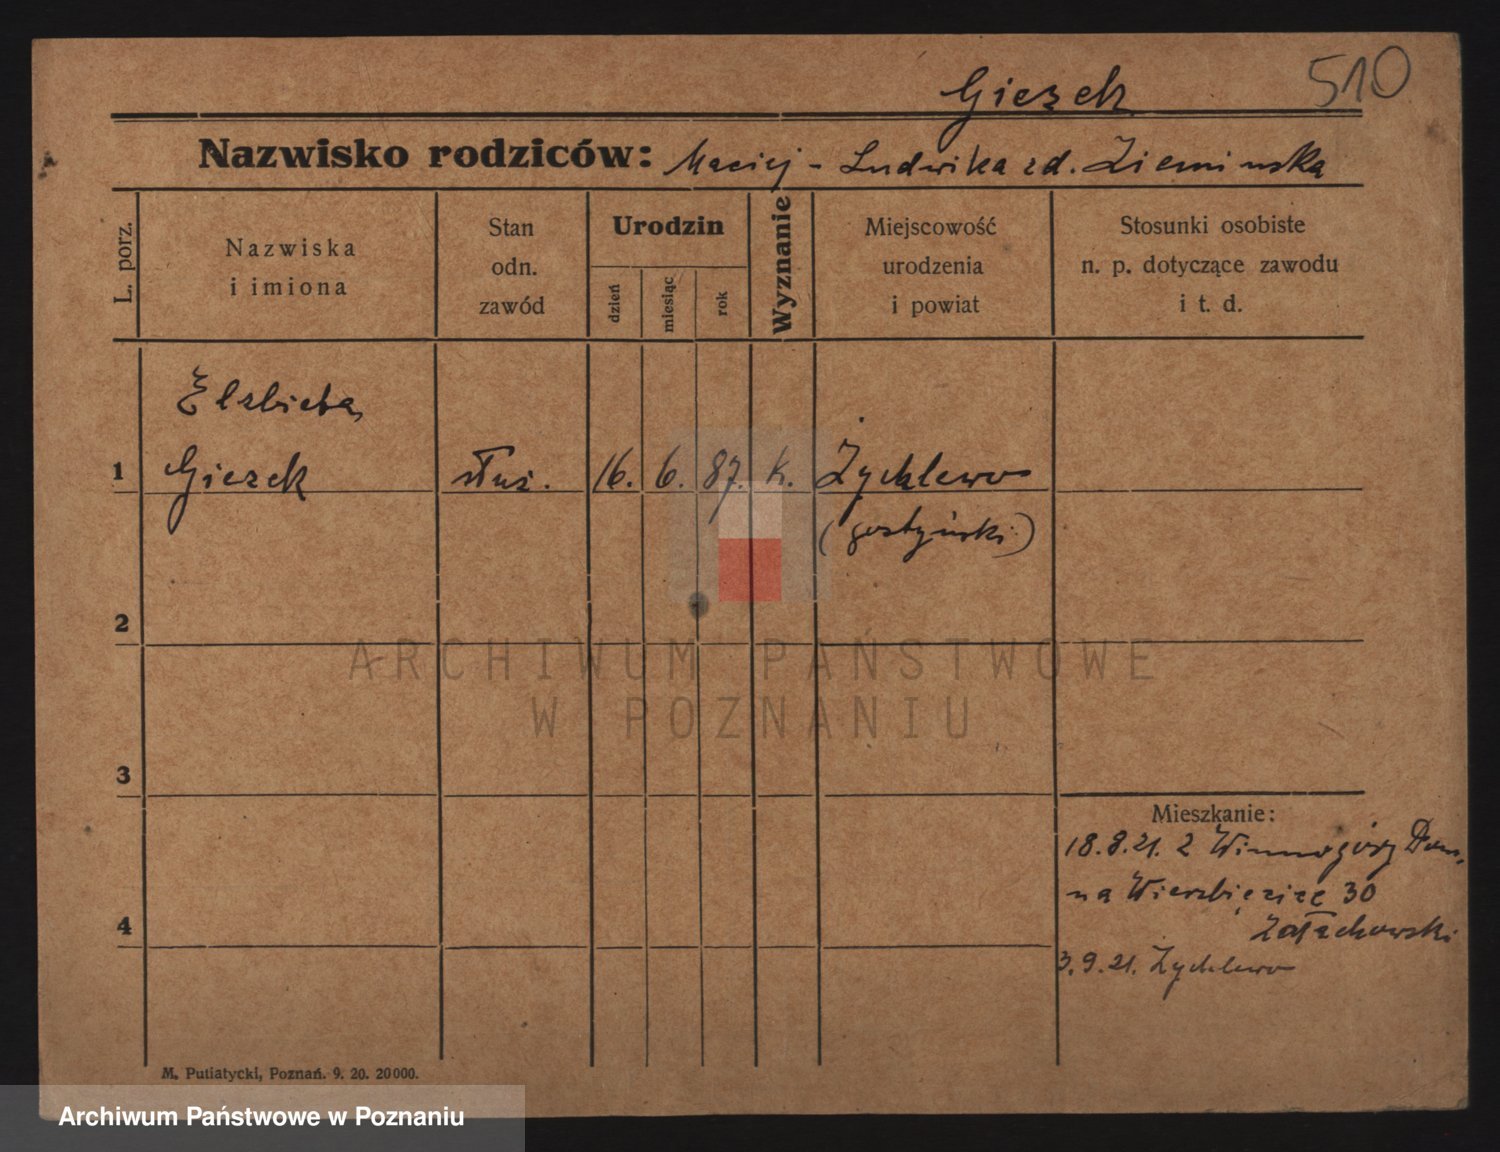 510
Giezek
Nazwisko rodziców: Maciej - Ludwika zd. Ziemińska
L. porz.
Nazwiska
i imiona
Stan
odn.
zawód
Urodzin
dzień
miesiąc
rok
Wyznanie
Miejscowość
urodzenia
i powiat
Stosunki osobiste
n. p. dotyczące zawodu
i t. d.
Elzbieta
1 Giezek służ. 16. 6. 87. k. Żychlewo
(gostyński)
2
3
4
Mieszkanie:
18.8.21. z Winnogóry Dom.
na Wierzbięcice 30
Załachowski
3.9.21. Żychlewo
M. Putiatycki, Poznań. 9. 20. 20000.
ARCHIWUM PAŃSTWOWE
W POZNANIU
Archiwum Państwowe w Poznaniu